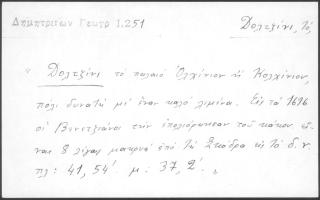 Δημητριέων Γεωγρ 1.251
Δολτζίνι, τό,
" Δολτζίνι τό παλαιό Ὀλχίνιον ἤ Κολχίνιον,
πόλι δυνατή μέ ἕναν καλό λιμένα. Εἰς τά 1696
οἱ Βενετζιάνοι τήν ἐπολιόρκησαν τοῦ κάκου. εἶ-
ναι 8 λίγαις μακρυά ἀπό τή Σκόδρα εἰς τό δ. ν.
πλ: 41, 54'. μ: 37, 2'. „